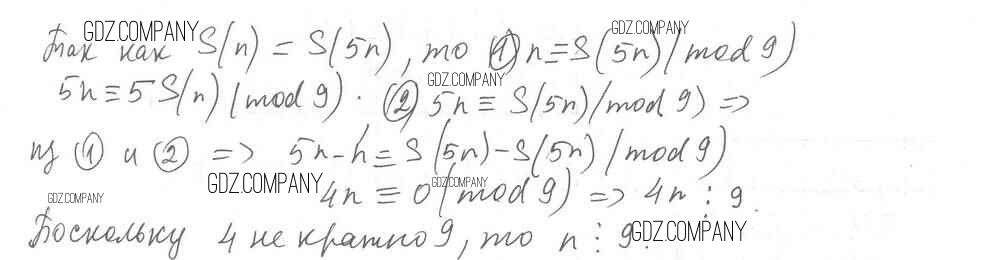 Так как S(n) = S(5n), то ① n ≡ S(5n) (mod 9)
5n ≡ 5S(n) (mod 9). ② 5n ≡ S(5n) (mod 9) =>
из ① и ② => 5n - n ≡ S(5n) - S(5n) (mod 9)
4n ≡ 0 (mod 9) => 4n ⋮ 9.
Поскольку 4 не кратно 9, то n ⋮ 9.
GDZ.COMPANY
GDZ.COMPANY
GDZ.COMPANY
GDZ.COMPANY
GDZ.COMPANY
GDZ.COMPANY
GDZ.COMPANY